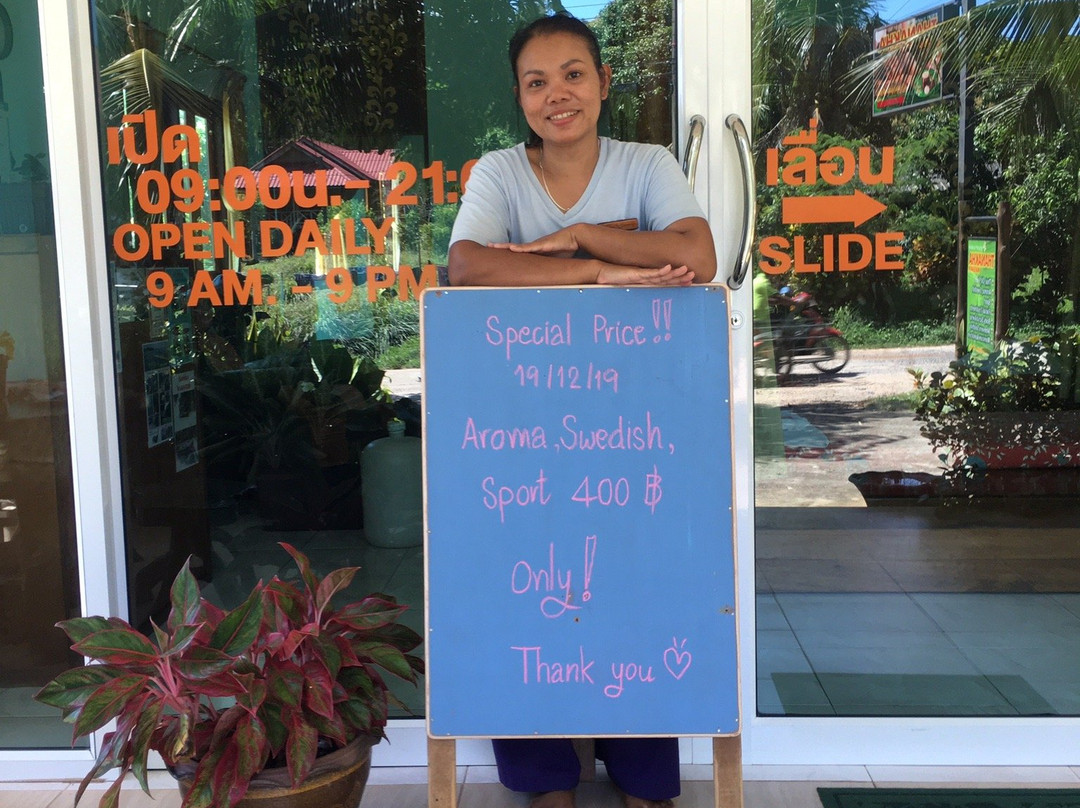 เปิด
09:00น. - 21:0
OPEN DAILY
9 AM. - 9 PM
เลื่อน
SLIDE
Special Price!!
19/12/19
Aroma, Swedish,
Sport 400 ฿
Only!
Thank you